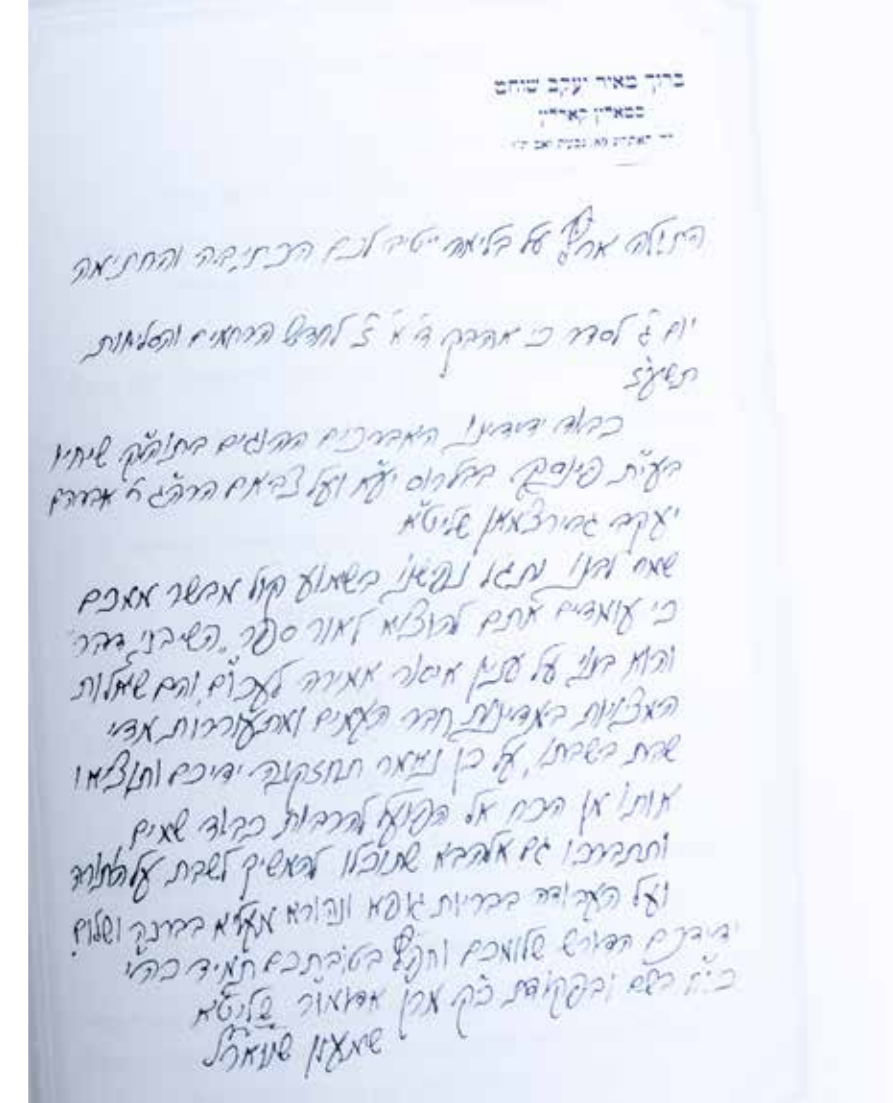 ברוך מאיר יעקב שוחט
סטאלין קארלין
התולה ארץ על בלימה ייטיב לכם הכתיבה והחתימה
יום ג' לסדר כי לחדש הרחמים והסליחות
תשע"ז
כבוד ידידינו האברכים ההוגים בתוה"ק שיחיו
בעי"ת פינסק בבלרוס יע"א ועל צבאם הרה"ג ר' אברהם
יעקב שליט"א
שמח לבנו ותגל נפשנו בשמוע קול מבשר ממכם
כי עומדים אתם להוציא לאור ספר "השיבני דבר"
והוא בנוי על ענין איסור אמירה לעכו"ם, והם שאלות
המצויות במדינות חבר העמים ומתעוררות מדי
שבת בשבתו, על כן נאמר תחזקנה ידיכם ותוציאו
אותו מן הכח אל הפועל להרבות כבוד שמים
ותתברכו גם מלהבא שתוכלו להמשיך לשבת על התורה
ועל העבודה בבריות גופא ונהורא מעליא בברכה ושלום
ידידכם הדורש שלומכם וחפץ בטובתכם תמיד כה"י
בשם ובפקודת כ"ק מרן אדמו"ר שליט"א
שמעון